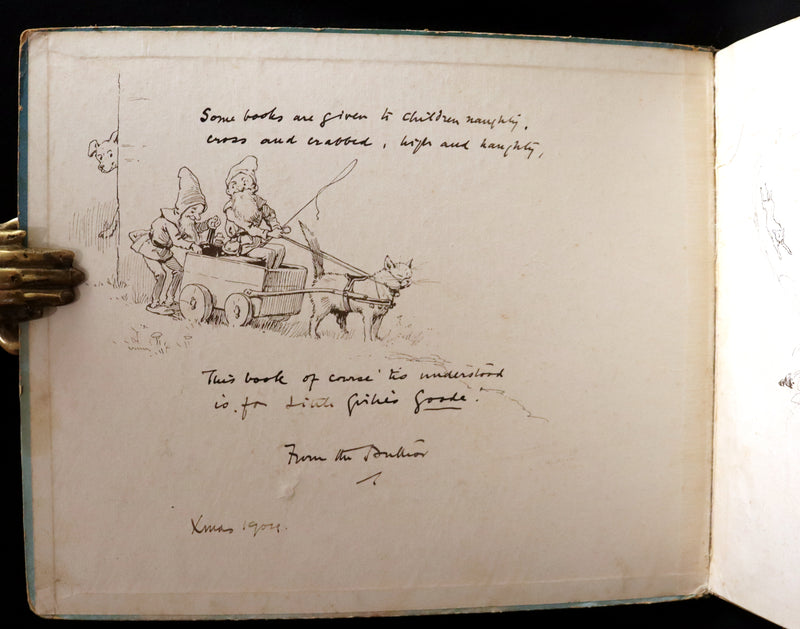 Some books are given to children naughty,
cross and crabbed, high and haughty,
This book of course 'tis understood
is for Little Girlies Goode!
From the Author
Xmas 1904.